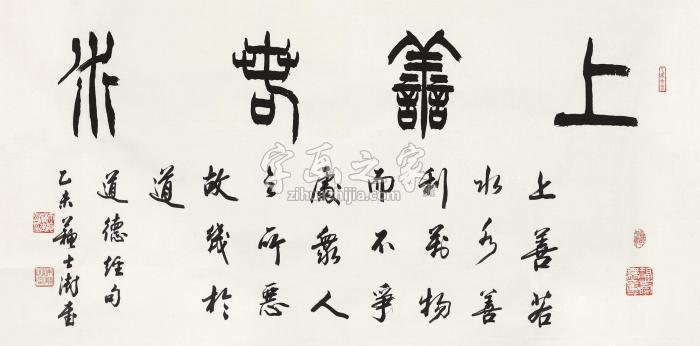 上善若水
上善若
水水善
利萬物
而不爭
處衆人
之所惡
故幾於
道
道德經句
乙未蘇士澍書
字画之家
zihuazhijia.com